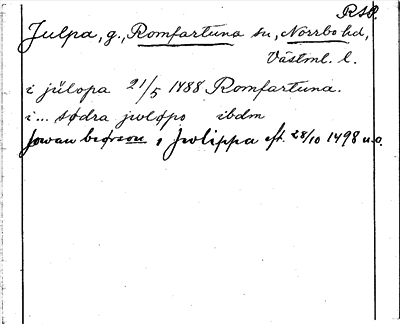 RSP.
Julpa, g., Romfartuna sn, Norrbo hd,
Västml. l.
i jülopa 21/5 1488 Romfartuna.
i... södra jwlöpo ibdm
Jowan biörsson i Jwlippa eft. 28/10 1498 u.o.